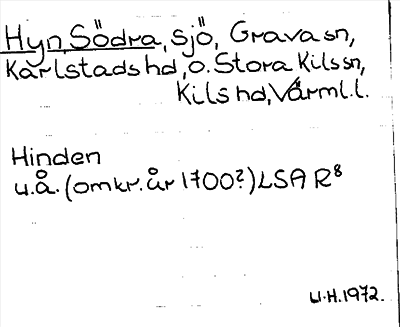 Hyn, Södra, sjö, Grava sn,
Karlstads hd, o. Stora Kils sn,
Kils hd, Värml. l.
Hinden
u.å. (omkr. år 1700?) LSA R8
U.H. 1972.